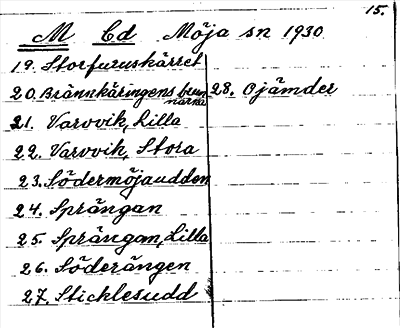 15.
M Cd Möja sn 1930
19. Storfuruskärret
20. Brännkäringens brun
narna
21. Varvvik, Lilla
22. Varvvik, Stora
23. Södermöjaudden
24. Sprängan
25. Sprängan, Lilla
26. Söderängen
27. Stichlesudd
28. Ojämder